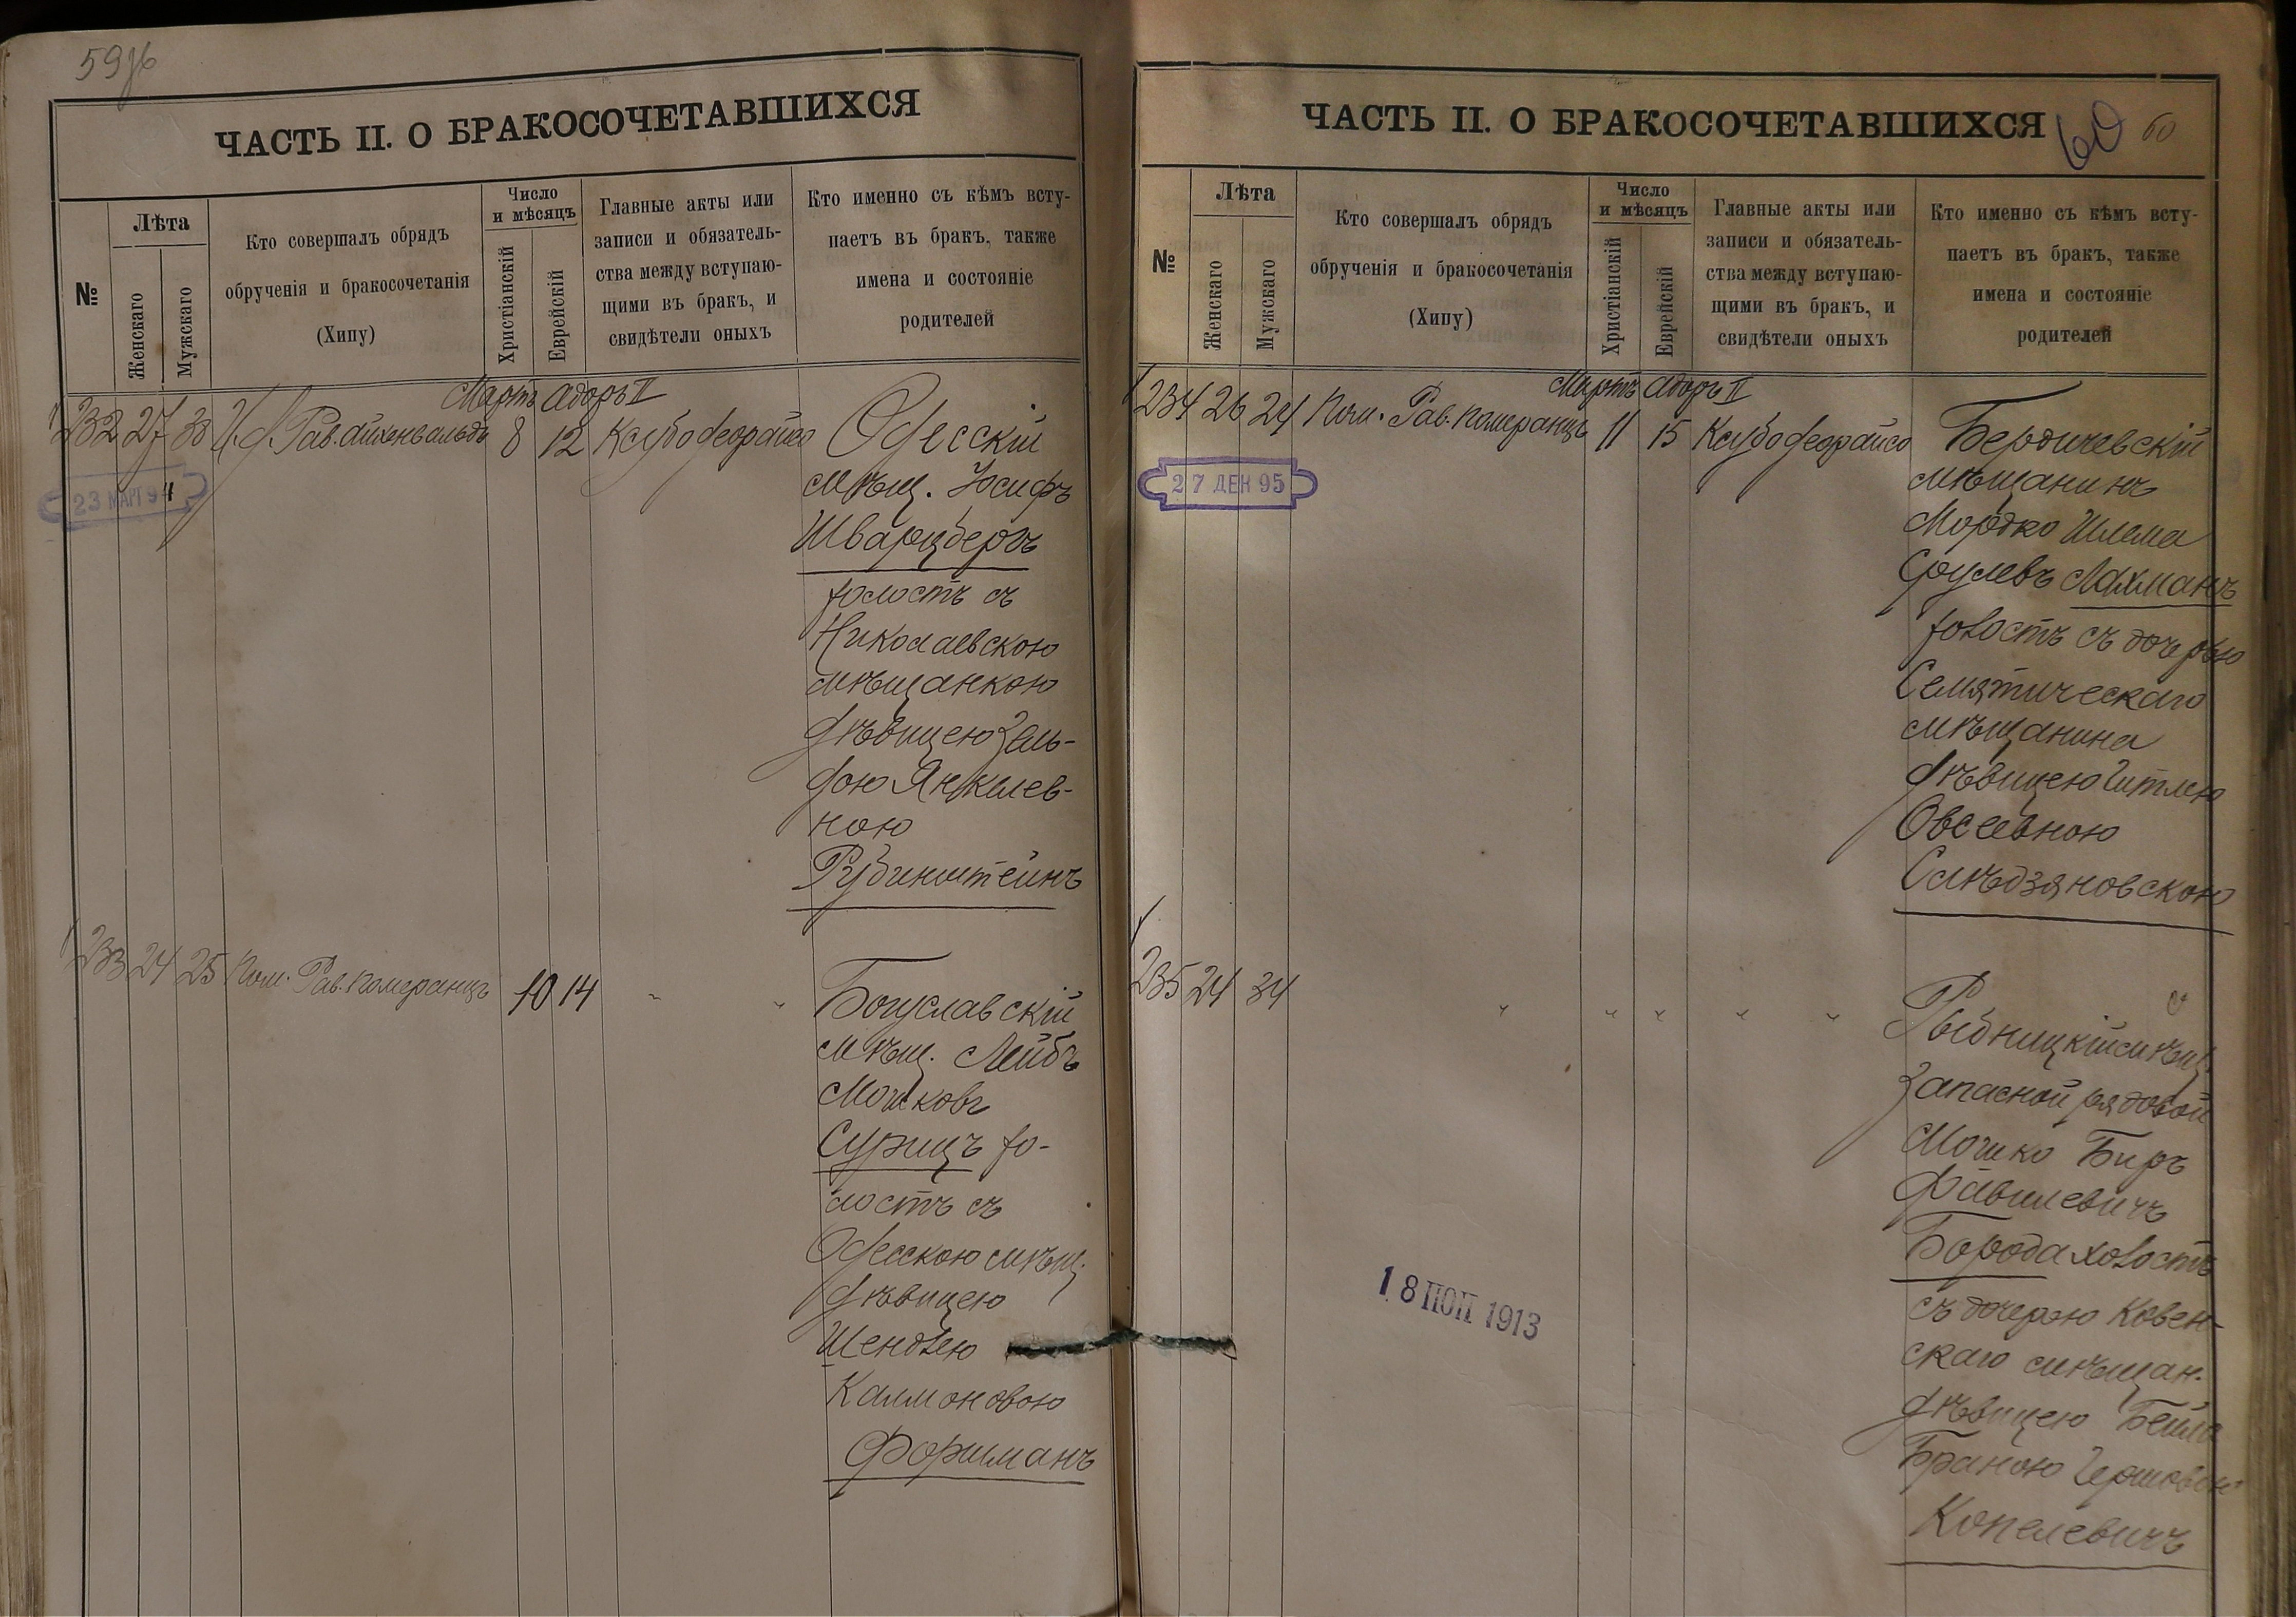 59
ЧАСТЬ II. О БРАКОСОЧЕТАВШИХСЯ
№
Лѣта
Женскаго
Мужскаго
Кто совершалъ обрядъ
обрученія и бракосочетанія
(Хипу)
Число
и мѣсяцъ
Христіанскій
Еврейскій
Главные акты или
записи и обязатель-
ства между вступаю-
щими въ бракъ, и
свидѣтели оныхъ
Кто именно съ кѣмъ всту-
паетъ въ бракъ, также
имена и состояніе
родителей
Мартъ Адоръ II
232 27 30 И.д. Рав. Айхенвальдъ 8 12 Ксубо деорайсо
23 МАРТ 94
Одесскій
мѣщ. Іосифъ
Шварцбергъ
холостъ съ
Николаевскою
мѣщанкою
дѣвицею Зель-
дою Янкелев-
ною
Рубинштейнъ
233 24 25 Пом. Рав. Померанцъ 10 14 " "
Богуславскій
мѣщ. Лейбъ
Мошковъ
Сурицъ хо-
лостъ съ
Одесскою мѣщ.
дѣвицею
Шендлею
Калмоновою
Форшманъ
ЧАСТЬ II. О БРАКОСОЧЕТАВШИХСЯ
60 60
№
Лѣта
Женскаго
Мужскаго
Кто совершалъ обрядъ
обрученія и бракосочетанія
(Хипу)
Число
и мѣсяцъ
Христіанскій
Еврейскій
Главные акты или
записи и обязатель-
ства между вступаю-
щими въ бракъ, и
свидѣтели оныхъ
Кто именно съ кѣмъ всту-
паетъ въ бракъ, также
имена и состояніе
родителей
Мартъ Адоръ II
234 26 24 Пом. Рав. Померанцъ 11 15 Ксубо деорайсо
27 ДЕК 95
Бердичевскій
мѣщанинъ
Мордко Шлема
Сруlевъ Лахманъ
холостъ съ дочерью
Семятическаго
мѣщанина
дѣвицею Гитлею
Овсеевною
Слѣдзяновскою
235 24 34 " " " " "
Рыбницкій мѣщ.
запасной рядовой
Мошко Беръ
Файвилевичъ
Борода холостъ
съ дочерью Ковен-
скаго мѣщан.
дѣвицею Бейла
Браною Гершовон
Копелевичъ
18 ПОП 1913